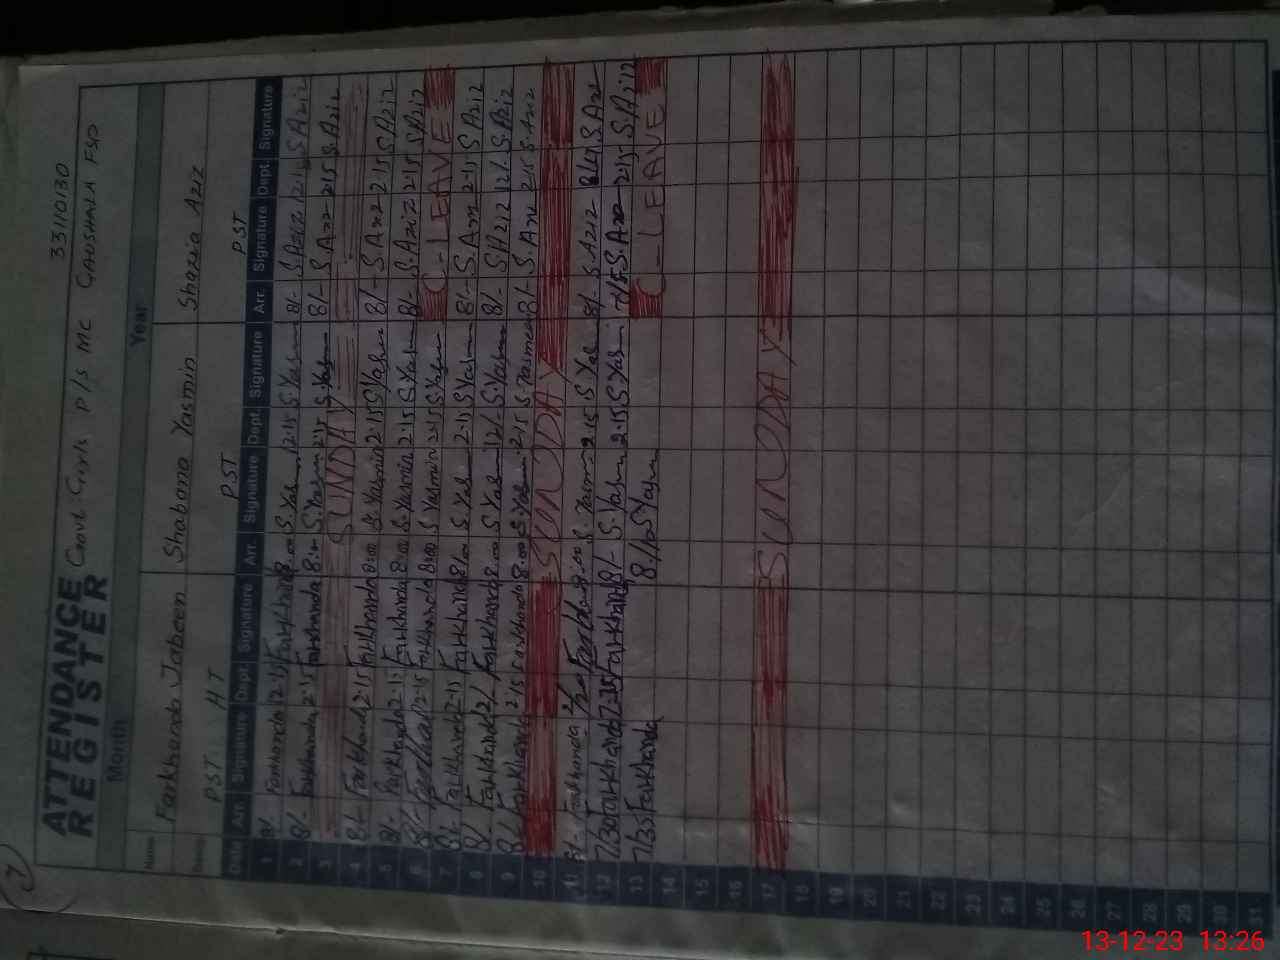 33110130
ATTENDANCE REGISTER Govt. Girls P/S MC GAOSHALA FSD
Month Year
Name Farkhanda Jabeen Shabana Yasmin Shazia Aziz
PST HT PST PST
Date Arr. Signature Dept. Signature Arr. Signature Dept. Signature Arr. Signature Dept. Signature
1 8/- Farkhanda 2-15 Farkhanda 8.00 S.Yasmin 2-15 S.Yasmin 8/- S.Aziz S.Aziz
2 8/- Farkhanda 2-15 Farkhanda S.Yasmin 2.15 S.Yasmin 8/- S.Aziz 2-15 S.Aziz
3 SUNDAY
4 8/- Farkhanda 2-15 Farkhanda 8:00 S.Yasmin 2-15 S.Yasmin 8/- S.Aziz 2-15 S.Aziz
5 8/- Farkhanda 2-15 Farkhanda 8:00 S.Yasmin 2.15 S.Yasmin 8/- S.Aziz 2-15 S.Aziz
6 8/- Farkhanda 2-15 Farkhanda 8:00 S Yasmin 2.15 S.Yasmin C-LEAVE
7 8/- Farkhanda 2-15 Farkhanda S.Yasmin 2-15 S.Yasmin 8/- S.Aziz 2-15 S.Aziz
8 8/- Farkhanda Farkhanda 8.00 S.Yasmin 12/- S.Yasmin 8/- S.Aziz 12/- S.Aziz
9 8/- Farkhanda 2-15 Farkhanda 8.00 S.Yasmin 2.15 S.Yasmeen 8/- S.Aziz 2.15 S.Aziz
10 SUNDAY
11 8/- Farkhanda Farkhanda S.Yasmin 2.15 S.Yasmin 8/- S.Aziz S.Aziz
12 7/30 Farkhanda Farkhanda 8/- S.Yasmin 2.15 S.Yasmin S.Aziz 2-15 S.Aziz
13 7/35 Farkhanda S.Yasmin C-LEAVE
14
15
16
17 SUNDAY
18
19
20
21
22
23
24
25
26
27
28
29
30
31
13-12-23 13:26